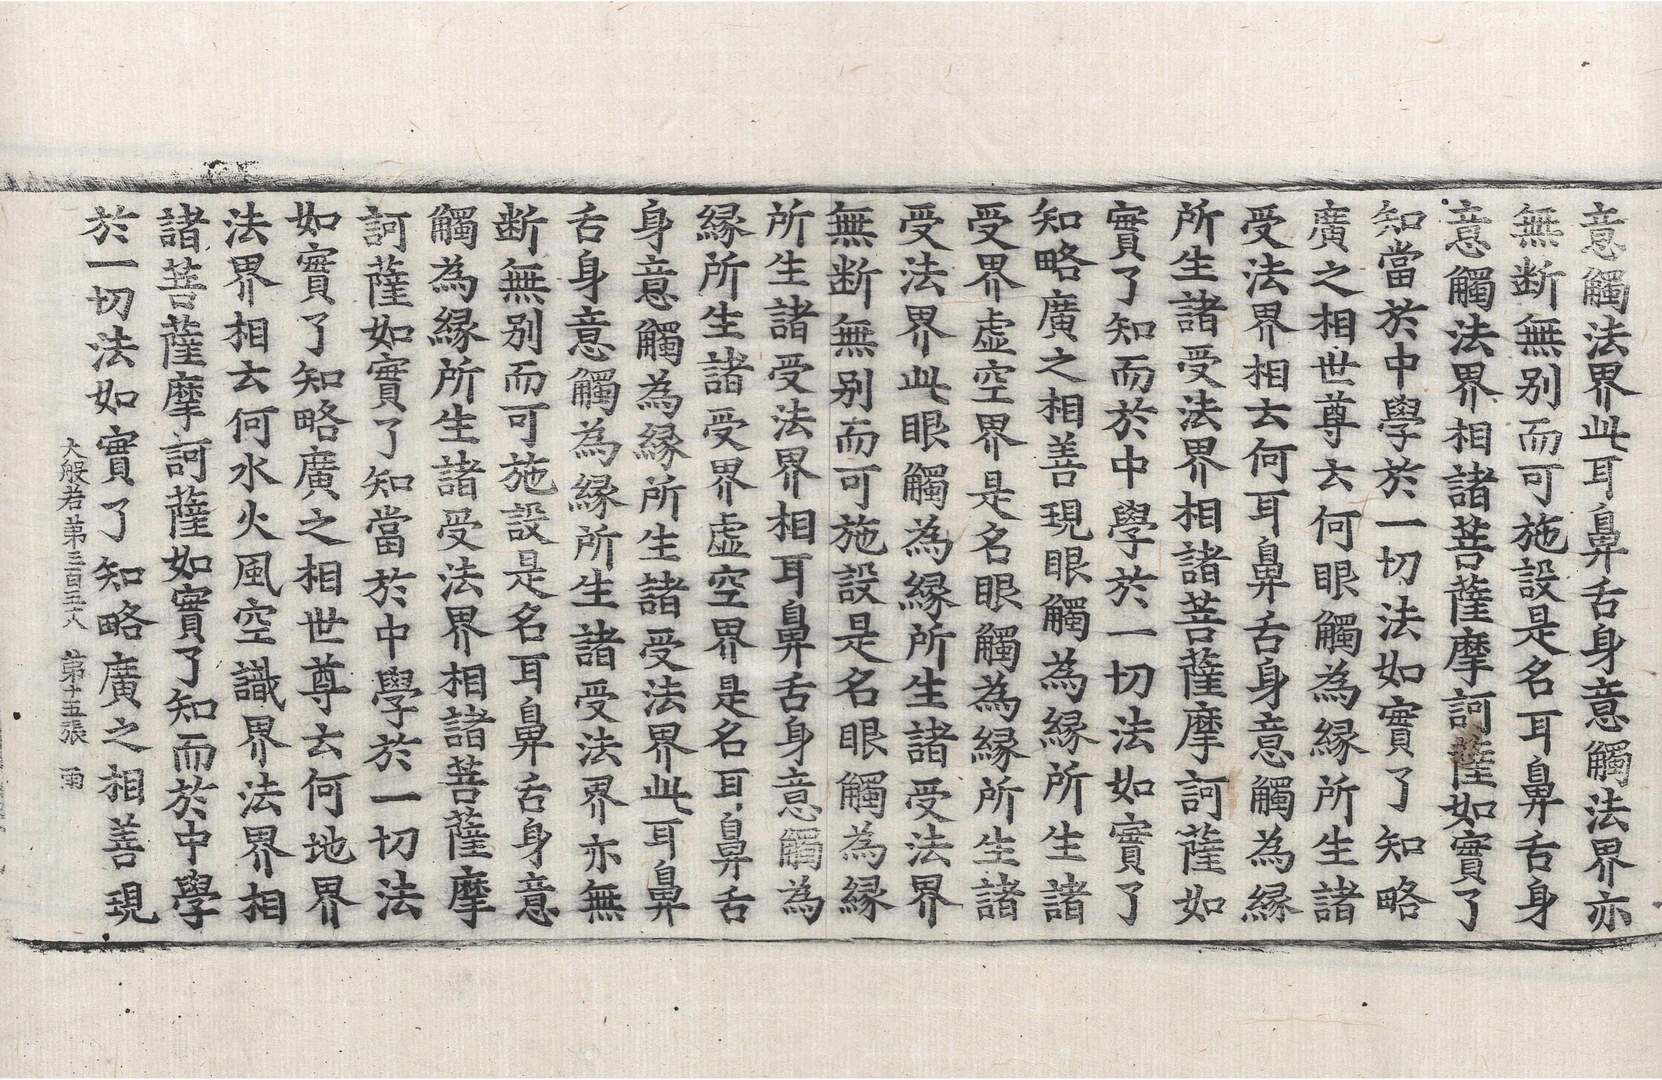 意觸法界此耳鼻舌身意觸法界亦
無断無别而可施設是名耳鼻舌身
意觸法界相諸菩薩摩訶薩如實了
知當於中學於一切法如實了知略
廣之相世尊云何眼觸為縁所生諸
受法界相云何耳鼻舌身意觸為縁
所生諸受法界相諸菩薩摩訶薩如
實了知而於中學於一切法如實了
知略廣之相善現眼觸為縁所生諸
受界虚空界是名眼觸為縁所生諸
受法界此眼觸為縁所生諸受法界
無断無别而可施設是名眼觸為縁
所生諸受法界相耳鼻舌身意觸為
縁所生諸受界虚空界是名耳鼻舌
身意觸為縁所生諸受法界此耳鼻
舌身意觸為縁所生諸受法界亦無
断無别而可施設是名耳鼻舌身意
觸為縁所生諸受法界相諸菩薩摩
訶薩如實了知當於中學於一切法
如實了知略廣之相世尊云何地界
法界相云何水火風空識界法界相
諸菩薩摩訶薩如實了知而於中學
於一切法如實了知略廣之相善現
大般若第三百五八 第十五張 雨